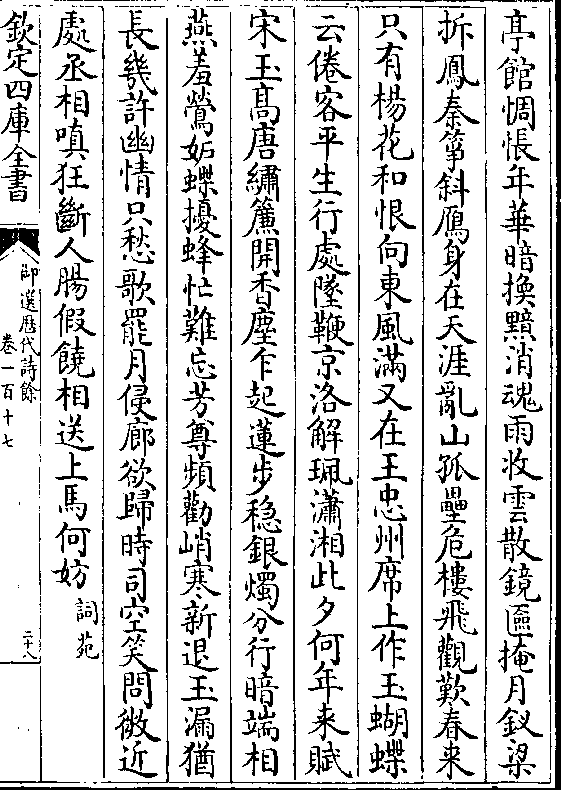 亭館惆悵年華暗換黯消魂雨收雲散鏡匳掩月釵梁
拆鳳秦箏斜鴈身在天涯亂山孤壘危樓飛觀歎春來
只有楊花和恨向東風滿又在王忠州席上作玉蝴蝶
云倦客平生行處墜鞭京洛解珮瀟湘此夕何年来賦
宋玉髙唐繡簾開香塵乍起蓮步穏銀燭分行暗端相
燕羞鶯妬蝶擾蜂忙難忘芳尊頻勸峭寒新退玉漏猶
長幾許幽情只愁歌罷月侵廊欲歸時司空笑問㣲近
處丞相嗔狂斷人腸假饒相送上馬何妨詞苑
欽定四庫全書
御選歷代詩餘
卷一百十七
二十八